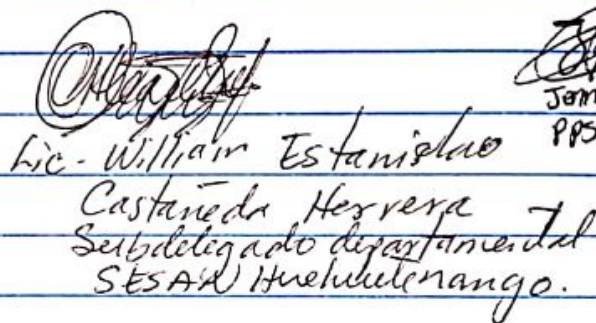 Lic. William Estanislao
Castañeda Herrera
Subdelegado departamental
SESAN Huehuetenango.
PPS